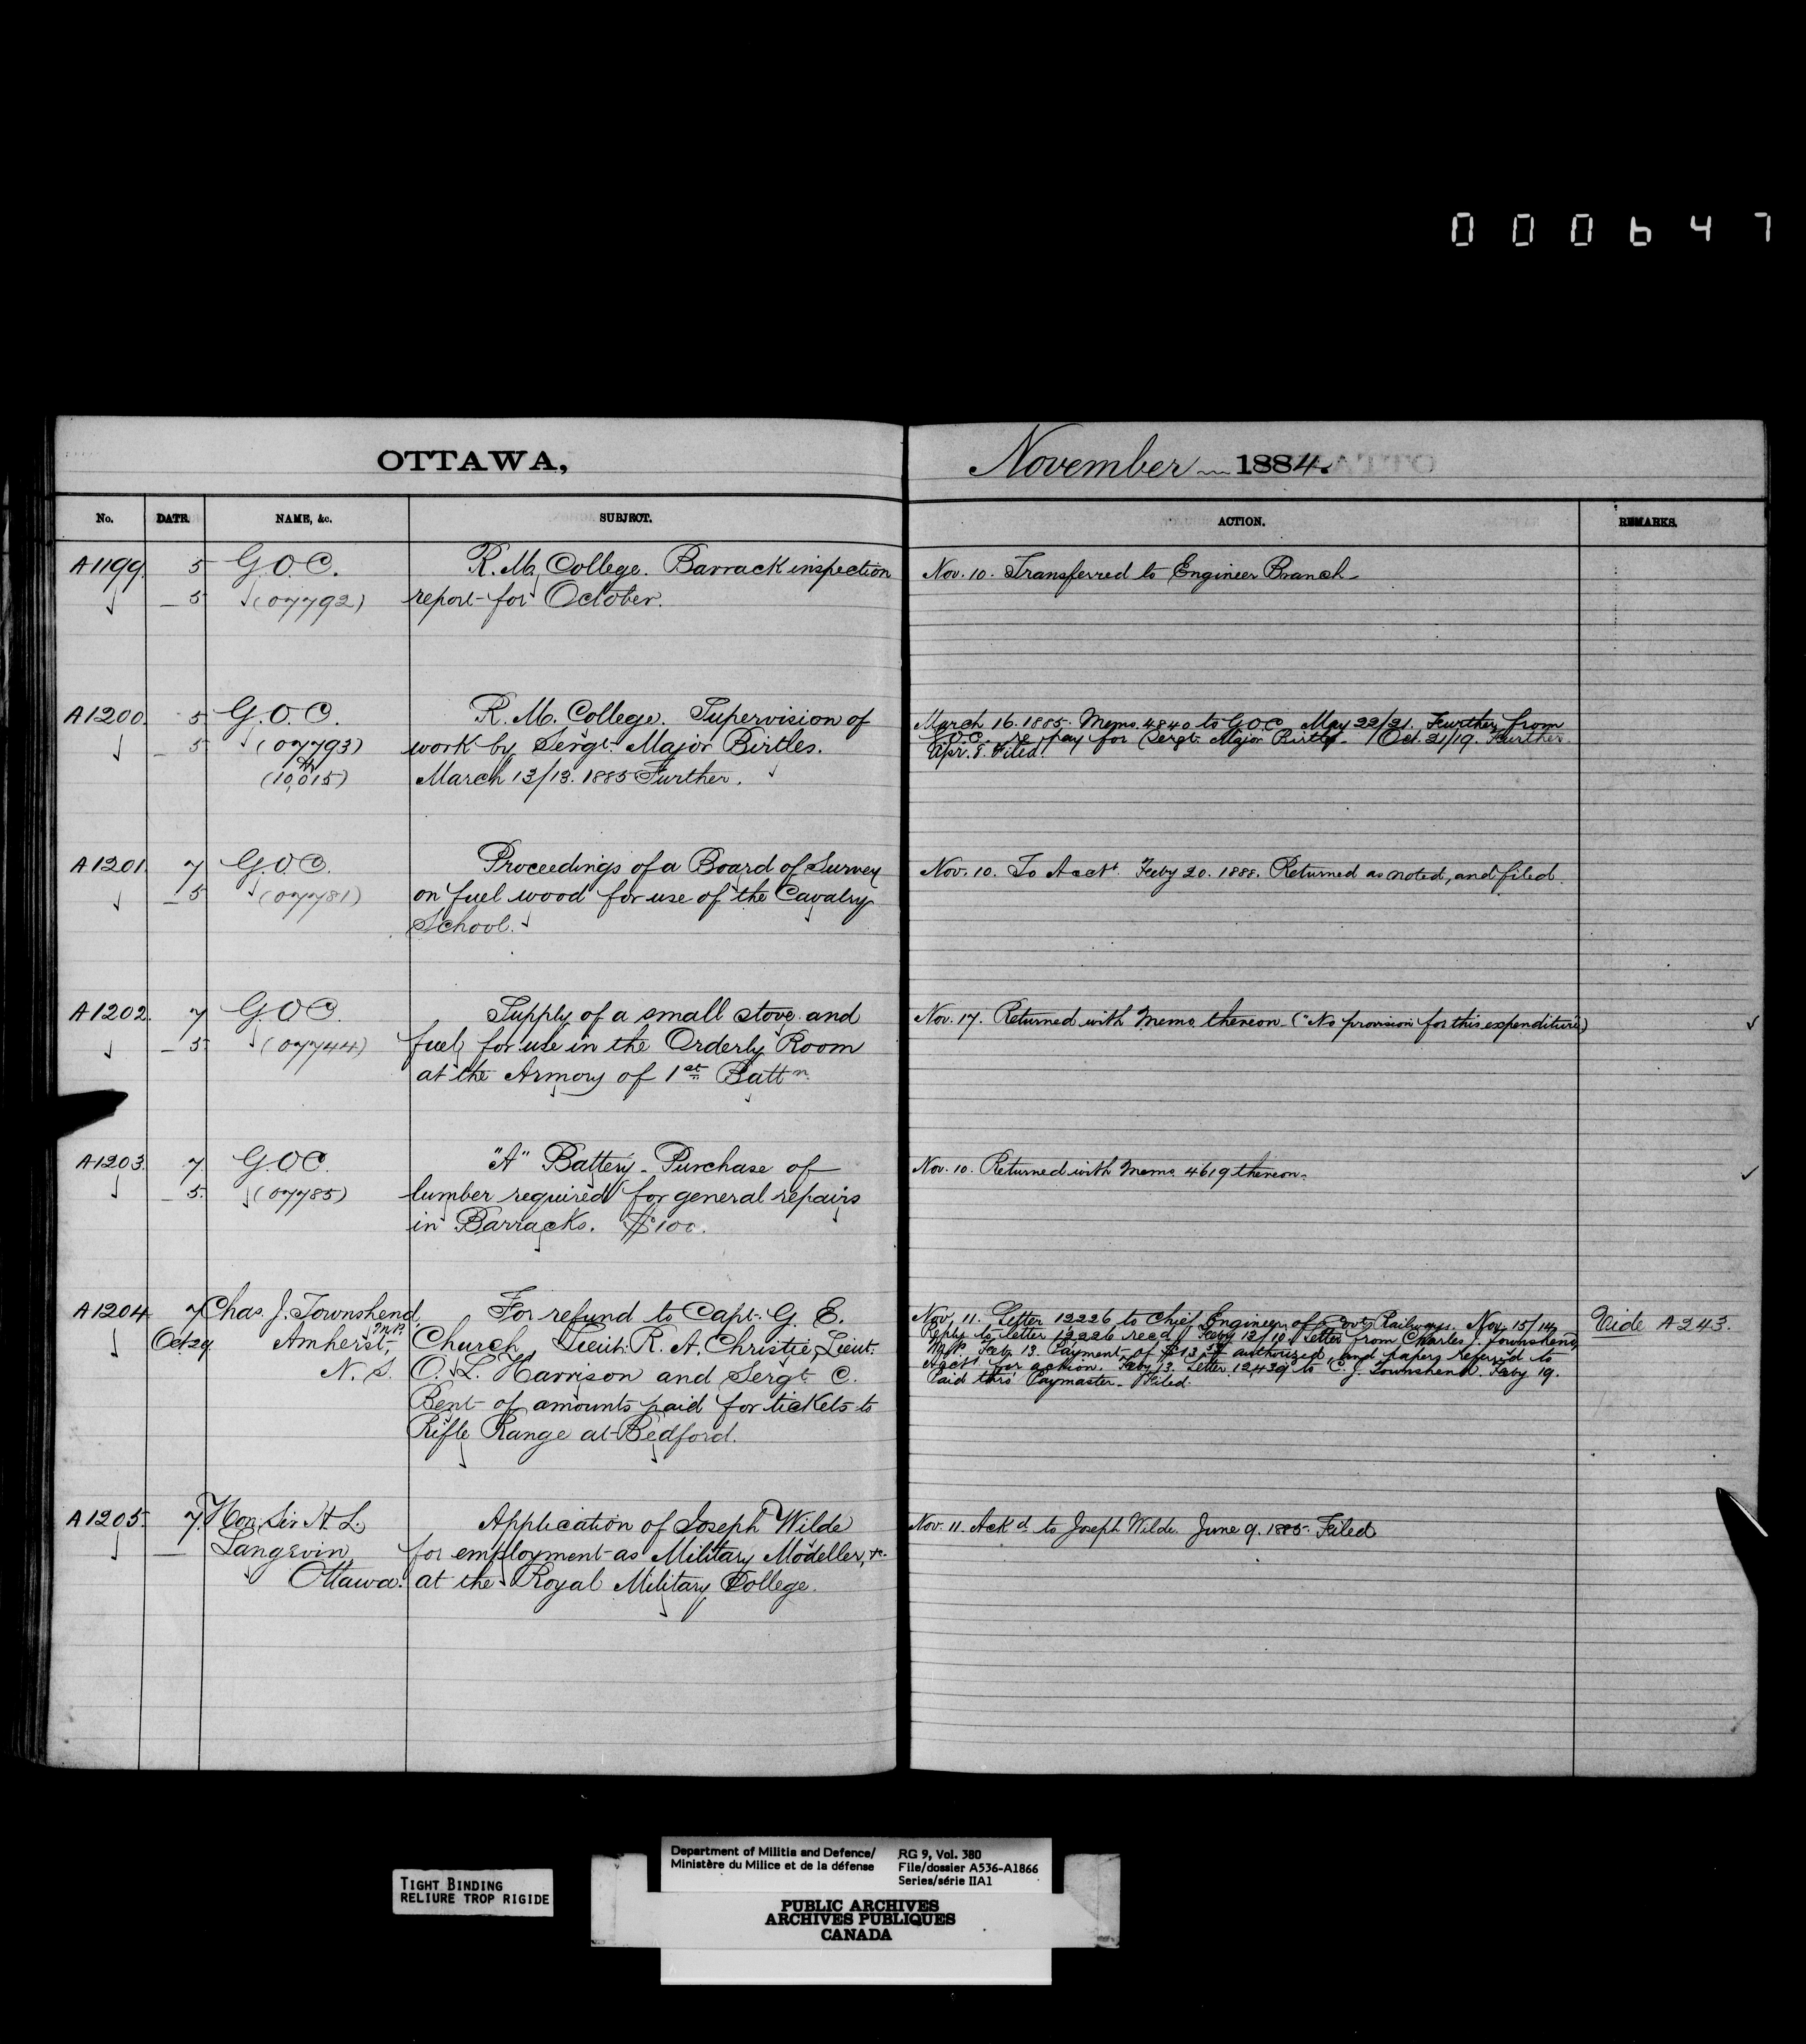 000647
OTTAWA,
November 1884.
No. DATE NAME, &c. SUBJECT. ACTION. REMARKS.
A1199. 5 G.O.C. R. M. College. Barrack inspection
5 (07792) report for October.
Nov. 10. Transferred to Engineer Branch
A1200. 5 G.O.C. R. M. College. Supervision of
5 (07793) work by Sergt. Major Birtles.
(10,015) March 13/13. 1885 Further.
March 16. 1885. Memo. 4840 to G.O.C. May 22/21. Further from
G.O.C. re pay for Sergt. Major Birtles. Oct. 21/19. Further.
Apr. 8. Filed.
A1201. 7 G.O.C. Proceedings of a Board of Survey
5 (07781) on fuel wood for use of the Cavalry
School.
Nov. 10. To Acct. Feby 20. 1888. Returned as noted, and filed.
A1202. 7 G.O.C. Supply of a small stove and
5 (07744) fuel for use in the Orderly Room
at the Armory of 1st Battn.
Nov. 17. Returned with Memo. thereon. ("No provision for this expenditure)
A1203. 7 G.O.C. "A" Battery. Purchase of
5. (07785) lumber required for general repairs
in Barracks. $100.
Nov. 10. Returned with Memo. 4619 thereon.
A1204 7 Chas. J. Townshend, For refund to Capt. G. E.
Oct 29 M.P. Amherst, Church, Lieut. R. A. Christie, Lieut.
N. S. O. L. Harrison and Sergt. C.
Bent of amounts paid for tickets to
Rifle Range at Bedford.
Nov. 11. Letter 12226 to Chief Engineer of Govt. Railways. Nov. 15/14
Reply to letter 12226 recd. Feby 12/10 Letter from Charles J. Townshend,
M.P. Feb. 13. Payment of $13 authorized and papers referred to
Acct. for action. Feby 13. Letter 12439 to C. J. Townshend. Feby 19.
Paid thro' Paymaster. Filed.
Vide A243.
A1205. 7. Hon. Sir H. L. Application of Joseph Wilde
Langevin, for employment as Military Modeller, &c.
Ottawa. at the Royal Military College.
Nov. 11. Ackd. to Joseph Wilde. June 9. 1885. Filed
TIGHT BINDING
RELIURE TROP RIGIDE
Department of Militia and Defence/
Ministère du Milice et de la défense
RG 9, Vol. 380
File/dossier A536-A1866
Series/série IIA1
PUBLIC ARCHIVES
ARCHIVES PUBLIQUES
CANADA